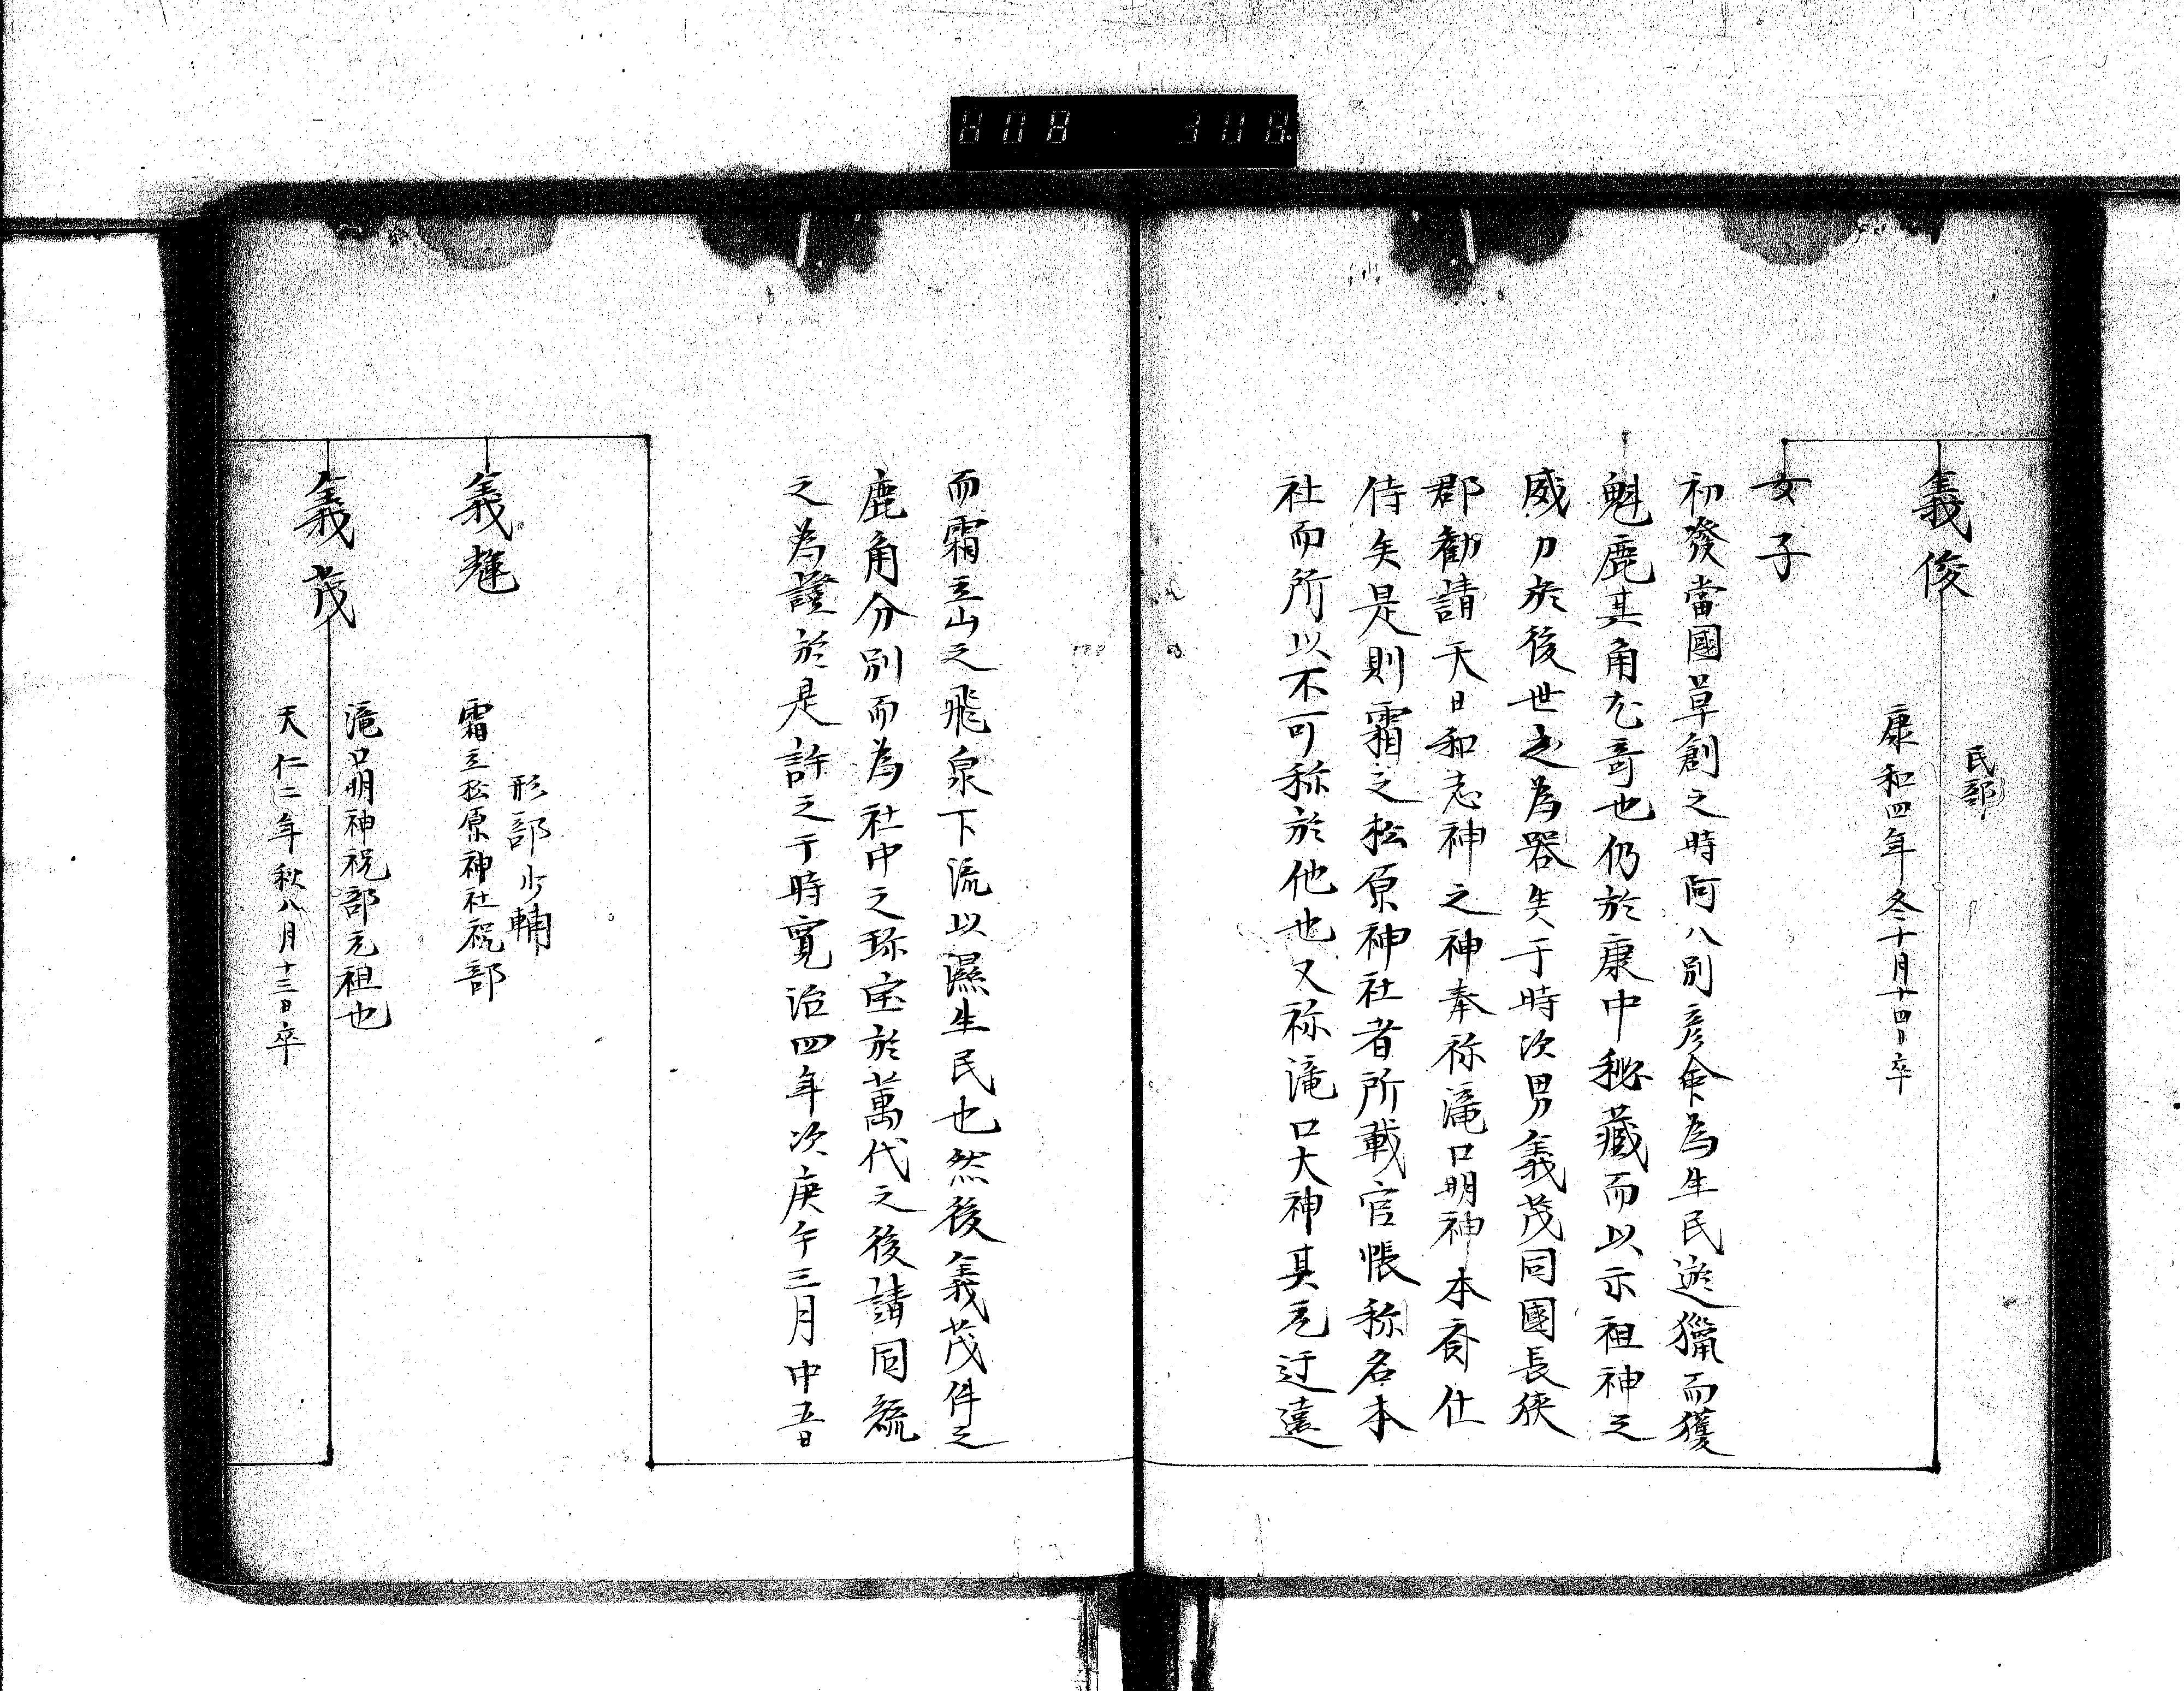 義俊
民部
康和四年冬十月十四日卒
女子
初發當國草創之時阿八別彦命為生民遊獵而獲
魁鹿其角尤奇也仍於康中秘藏而以示祖神之
威力於後世之為器矣于時次男義茂同國長狹
郡勸請天日和志神之神奉称滝口明神本斎仕
侍矣是則霜之松原神社者所載官帳称名本
社而所以不可称於他也又称滝口大神其迂遠
而霜立山之飛泉下流以濕生民也然後義茂件之
鹿角分別而為社中之珎宝於萬代之後請同
之為證於是許之于時寛治四年次庚午三月中五日
義難
形部少輔
霜立松原神社祝部
義茂
滝口明神祝部元祖也
天仁二年秋八月十三日卒